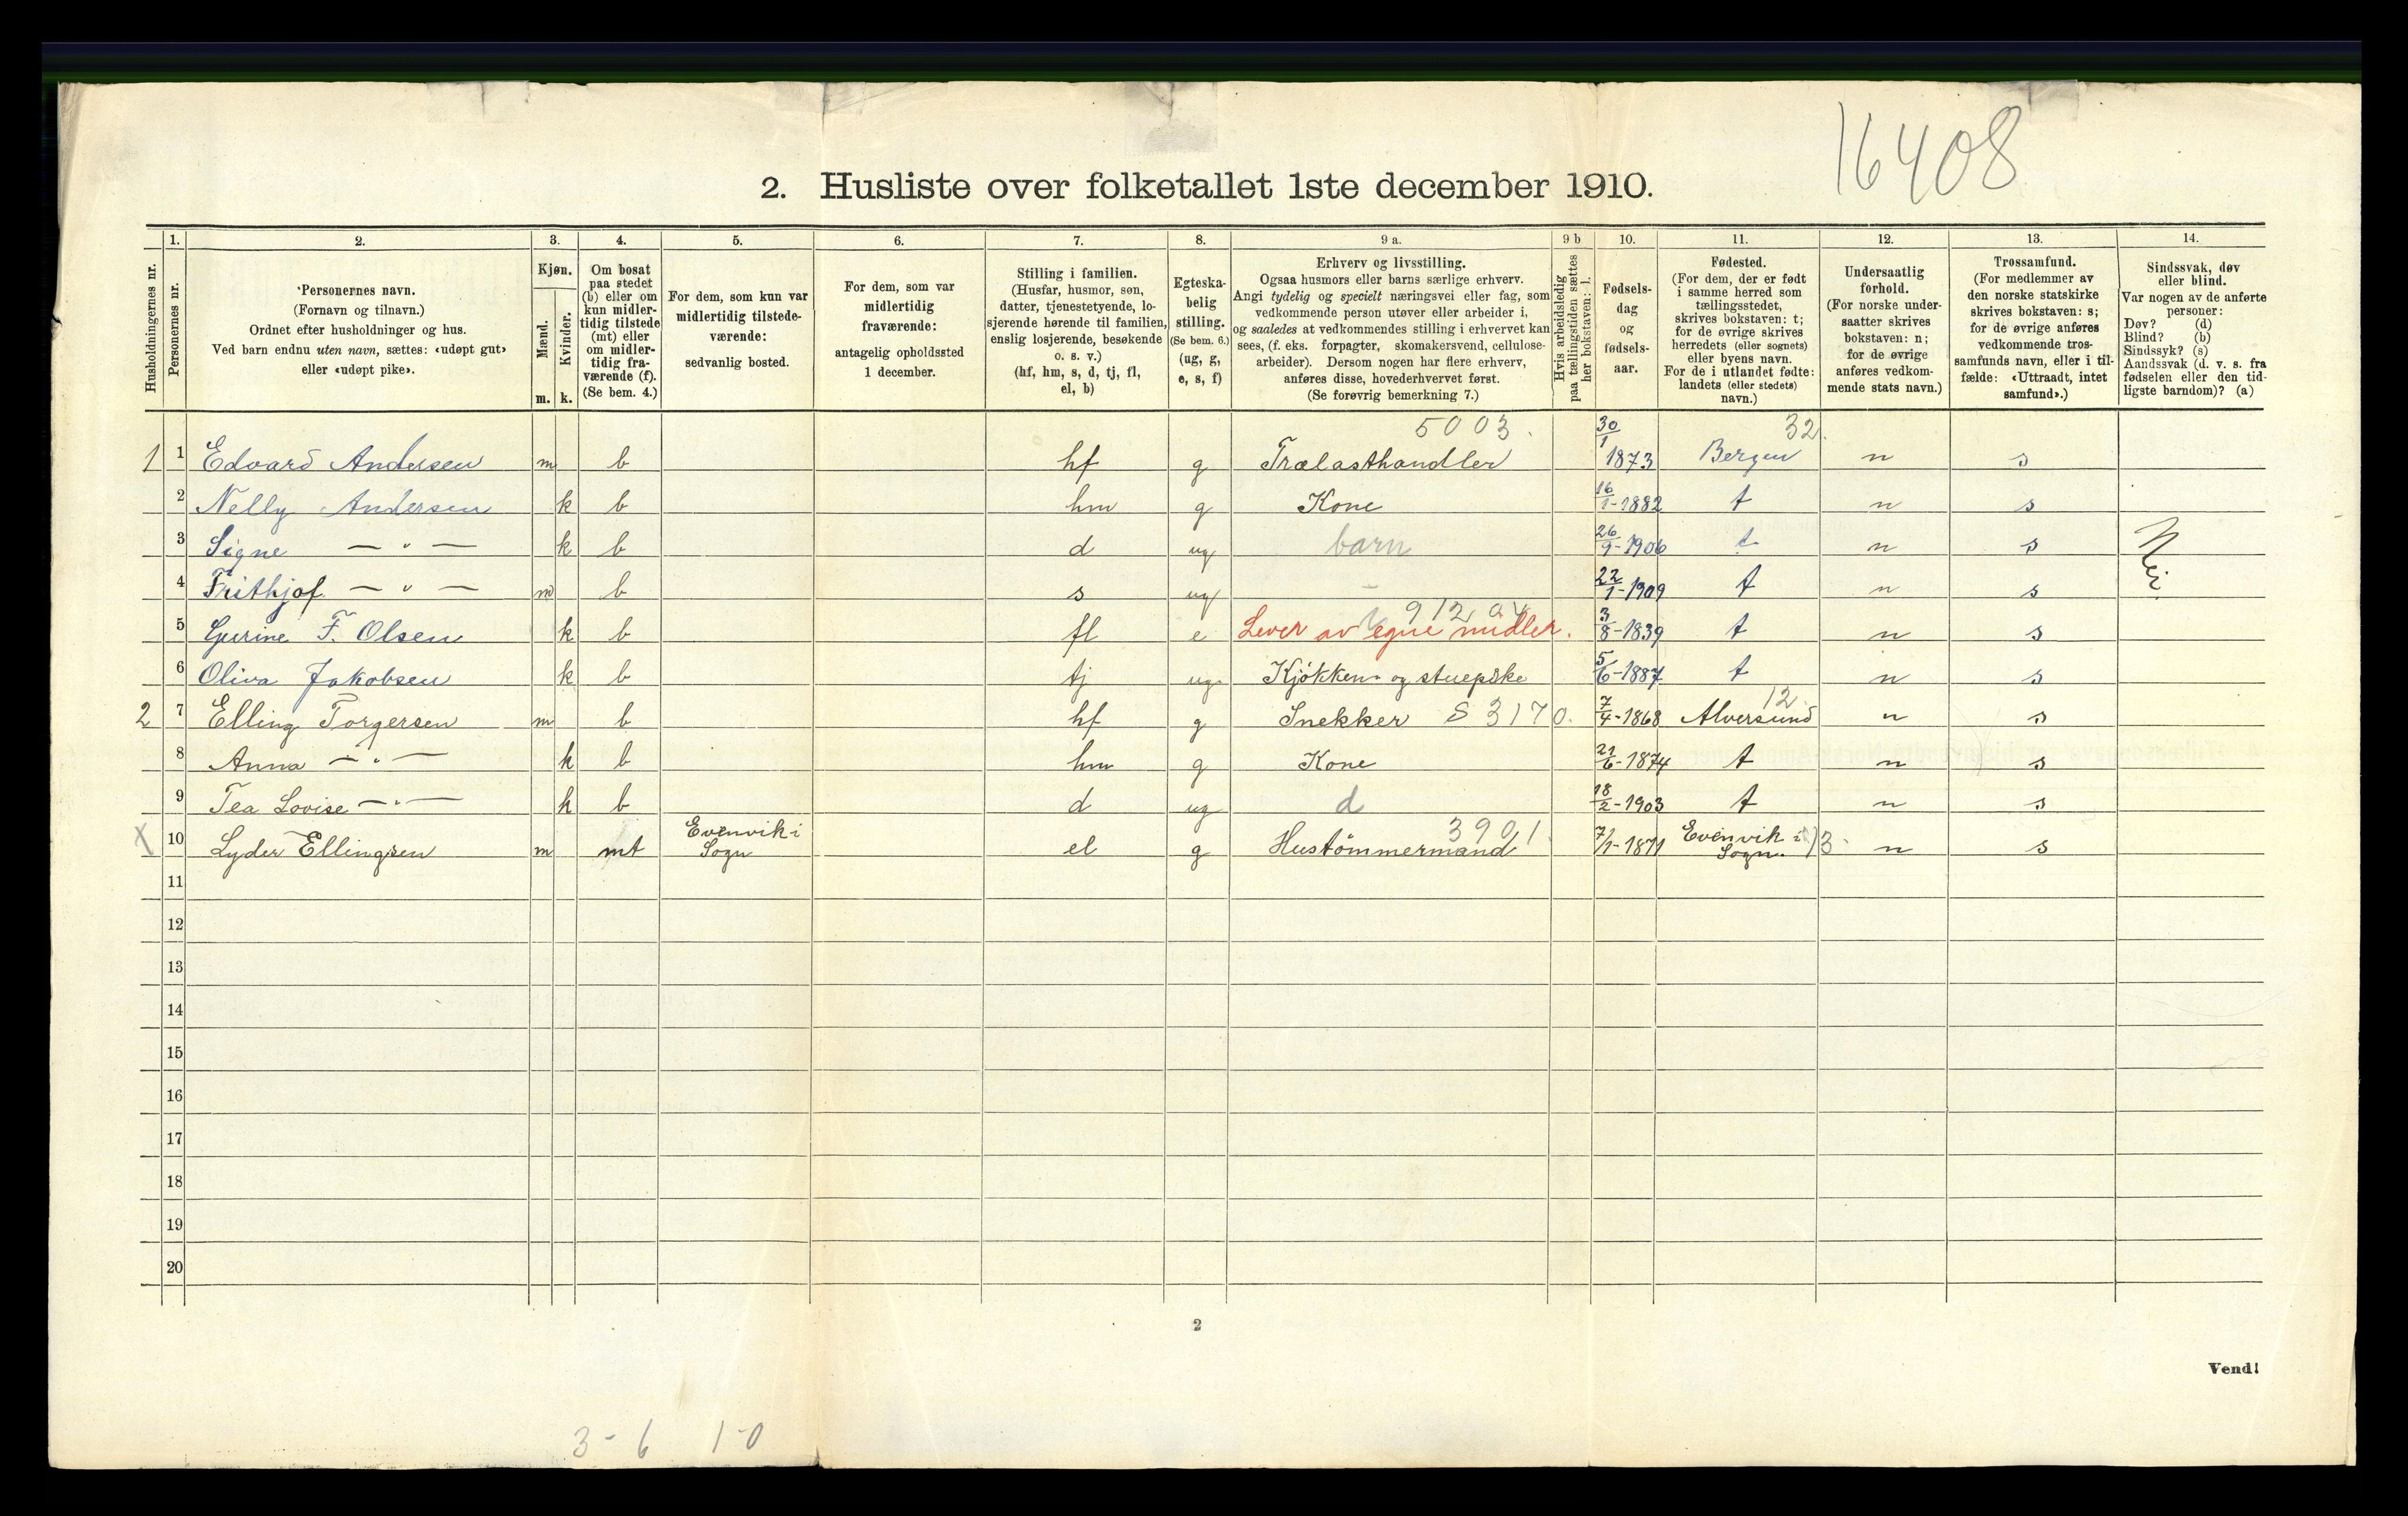 16408
2. Husliste over folketallet 1ste december 1910.
Husholdningernes nr.
1.
Personernes nr.
2.
Personernes navn.
(Fornavn og tilnavn.)
Ordnet efter husholdninger og hus.
Ved barn endnu uten navn, sættes: «udøpt gut»
eller «udøpt pike».
3.
Kjøn.
Mænd.
Kvinder.
m. k.
4.
Om bosat
paa stedet
(b) eller om
kun midler-
tidig tilstede
(mt) eller
om midler-
tidig fra-
værende (f).
(Se bem. 4.)
5.
For dem, som kun var
midlertidig tilstede-
værende:
sedvanlig bosted.
6.
For dem, som var
midlertidig
fraværende:
antagelig opholdssted
1 december.
7.
Stilling i familien.
(Husfar, husmor, søn,
datter, tjenestetyende, lo-
sjerende hørende til familien,
enslig losjerende, besøkende
o. s. v.)
(hf, hm, s, d, tj, fl,
el, b)
8.
Egteska-
belig
stilling.
(Se bem. 6.)
(ug, g,
e, s, f)
9 a.
Erhverv og livsstilling.
Ogsaa husmors eller barns særlige erhverv.
Angi tydelig og specielt næringsvei eller fag, som
vedkommende person utøver eller arbeider i,
og saaledes at vedkommendes stilling i erhvervet kan
sees, (f. eks. forpagter, skomakersvend, cellulose-
arbeider). Dersom nogen har flere erhverv,
anføres disse, hovederhvervet først.
(Se forøvrig bemerkning 7.)
9 b
Hvis arbeidsledig
paa tællingstiden sættes
her bokstaven: l.
10.
Fødsels-
dag
og
fødsels-
aar.
11.
Fødested.
(For dem, der er født
i samme herred som
tællingsstedet,
skrives bokstaven: t;
for de øvrige skrives
herredets (eller sognets)
eller byens navn.
For de i utlandet fødte:
landets (eller stedets)
navn.)
12.
Undersaatlig
forhold.
(For norske under-
saatter skrives
bokstaven: n;
for de øvrige
anføres vedkom-
mende stats navn.)
13.
Trossamfund.
(For medlemmer av
den norske statskirke
skrives bokstaven: s;
for de øvrige anføres
vedkommende tros-
samfunds navn, eller i til-
fælde: «Uttraadt, intet
samfund».)
14.
Sindssvak, døv
eller blind.
Var nogen av de anførte
personer:
Døv? (d)
Blind? (b)
Sindssyk? (s)
Aandssvak (d. v. s. fra
fødselen eller den tid-
ligste barndom)? (a)
5003. 32.
1 1 Edvard Andersen m b hf g Trælasthandler 30/1 1873 Bergen n s
2 Nelly Andersen k b hm g Kone 16/1-1882 t n s
3 Signe — " — k b d ug barn 26/9-1906 t n s
4 Frithjof — " — m b s ug - 22/1-1909 t n s
Nei.
5 Gurine F. Olsen k b fl e Lever av egne midler. 912 3/8-1839 t n s
6 Oliva Jakobsen k b tj ug Kjøkken- og stuepike 5/6-1887 t n s
2 7 Elling Torgersen m b hf g Snekker S 3170. 7/4-1868 Alversund 12 n s
8 Anna — " — k b hm g Kone 21/6-1874 t n s
9 Tea Lovise — " — k b d ug d 18/2-1903 t n s
X 10 Lyder Ellingsen m mt Evenvik i Sogn el g Hustømmermand 3901. 7/1-1871 Evenvik i Sogn. 13 n s
11
12
13
14
15
16
17
18
19
20
2
Vend!
3-6 1-0